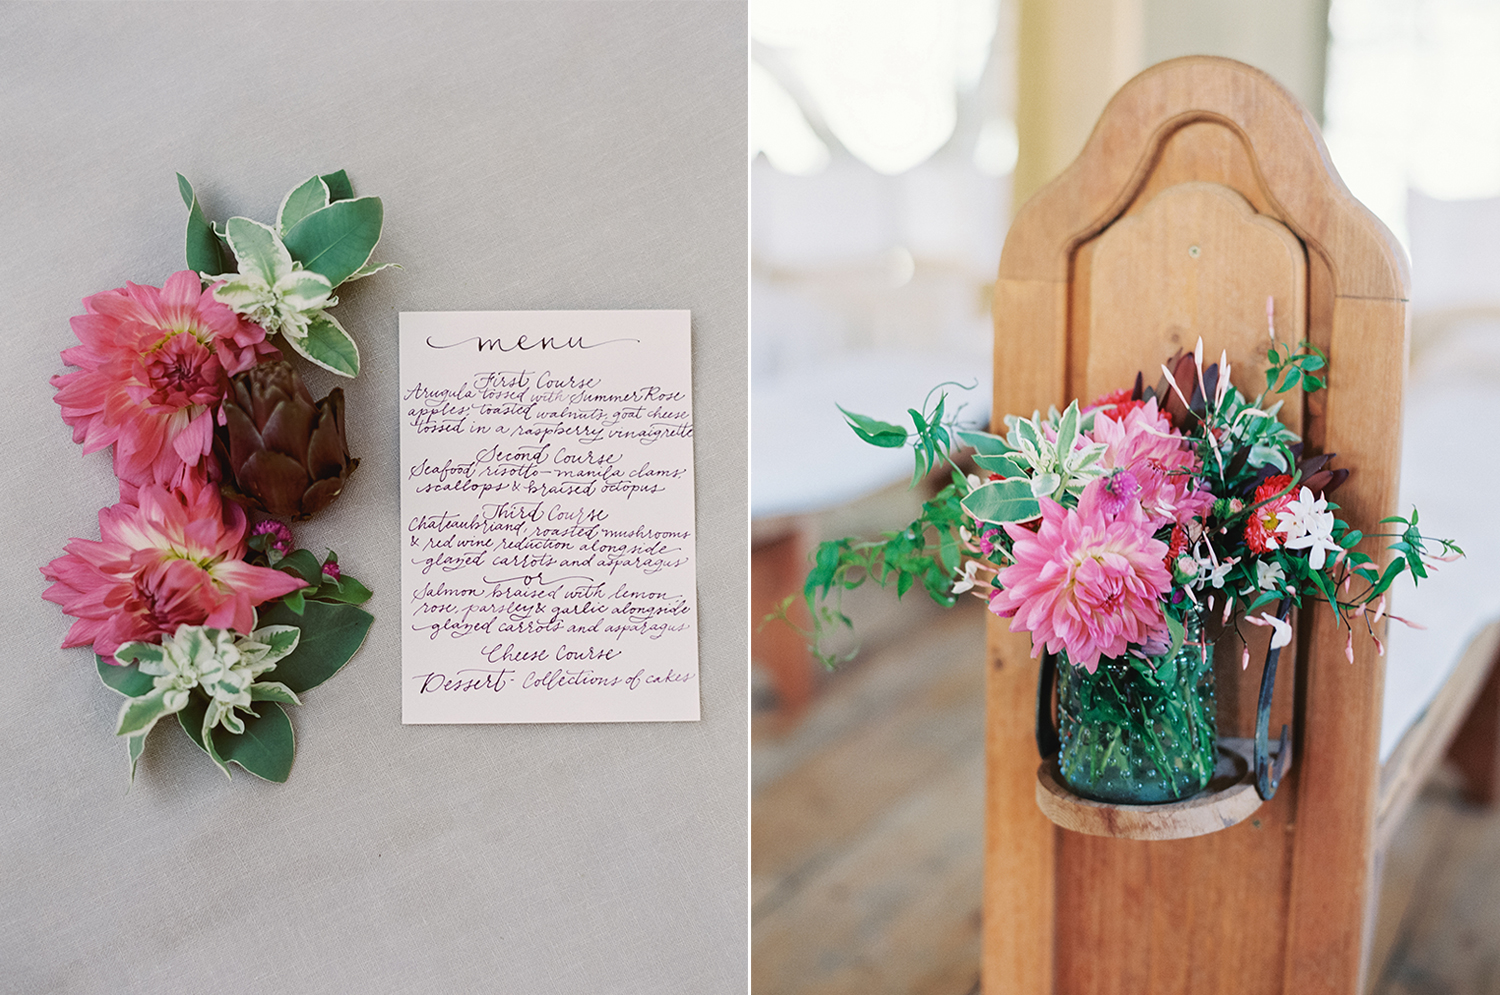 menu
First Course
Arugula tossed with Summer Rose
apples, toasted walnuts, goat cheese
tossed in a raspberry vinaigrette
Second Course
Seafood risotto - manila clams,
scallops & braised octopus
Third Course
Chateaubriand, roasted mushrooms
& red wine reduction alongside
glazed carrots and asparagus
or
Salmon braised with lemon,
rose, parsley & garlic alongside
glazed carrots and asparagus
Cheese Course
Dessert - Collections of cakes